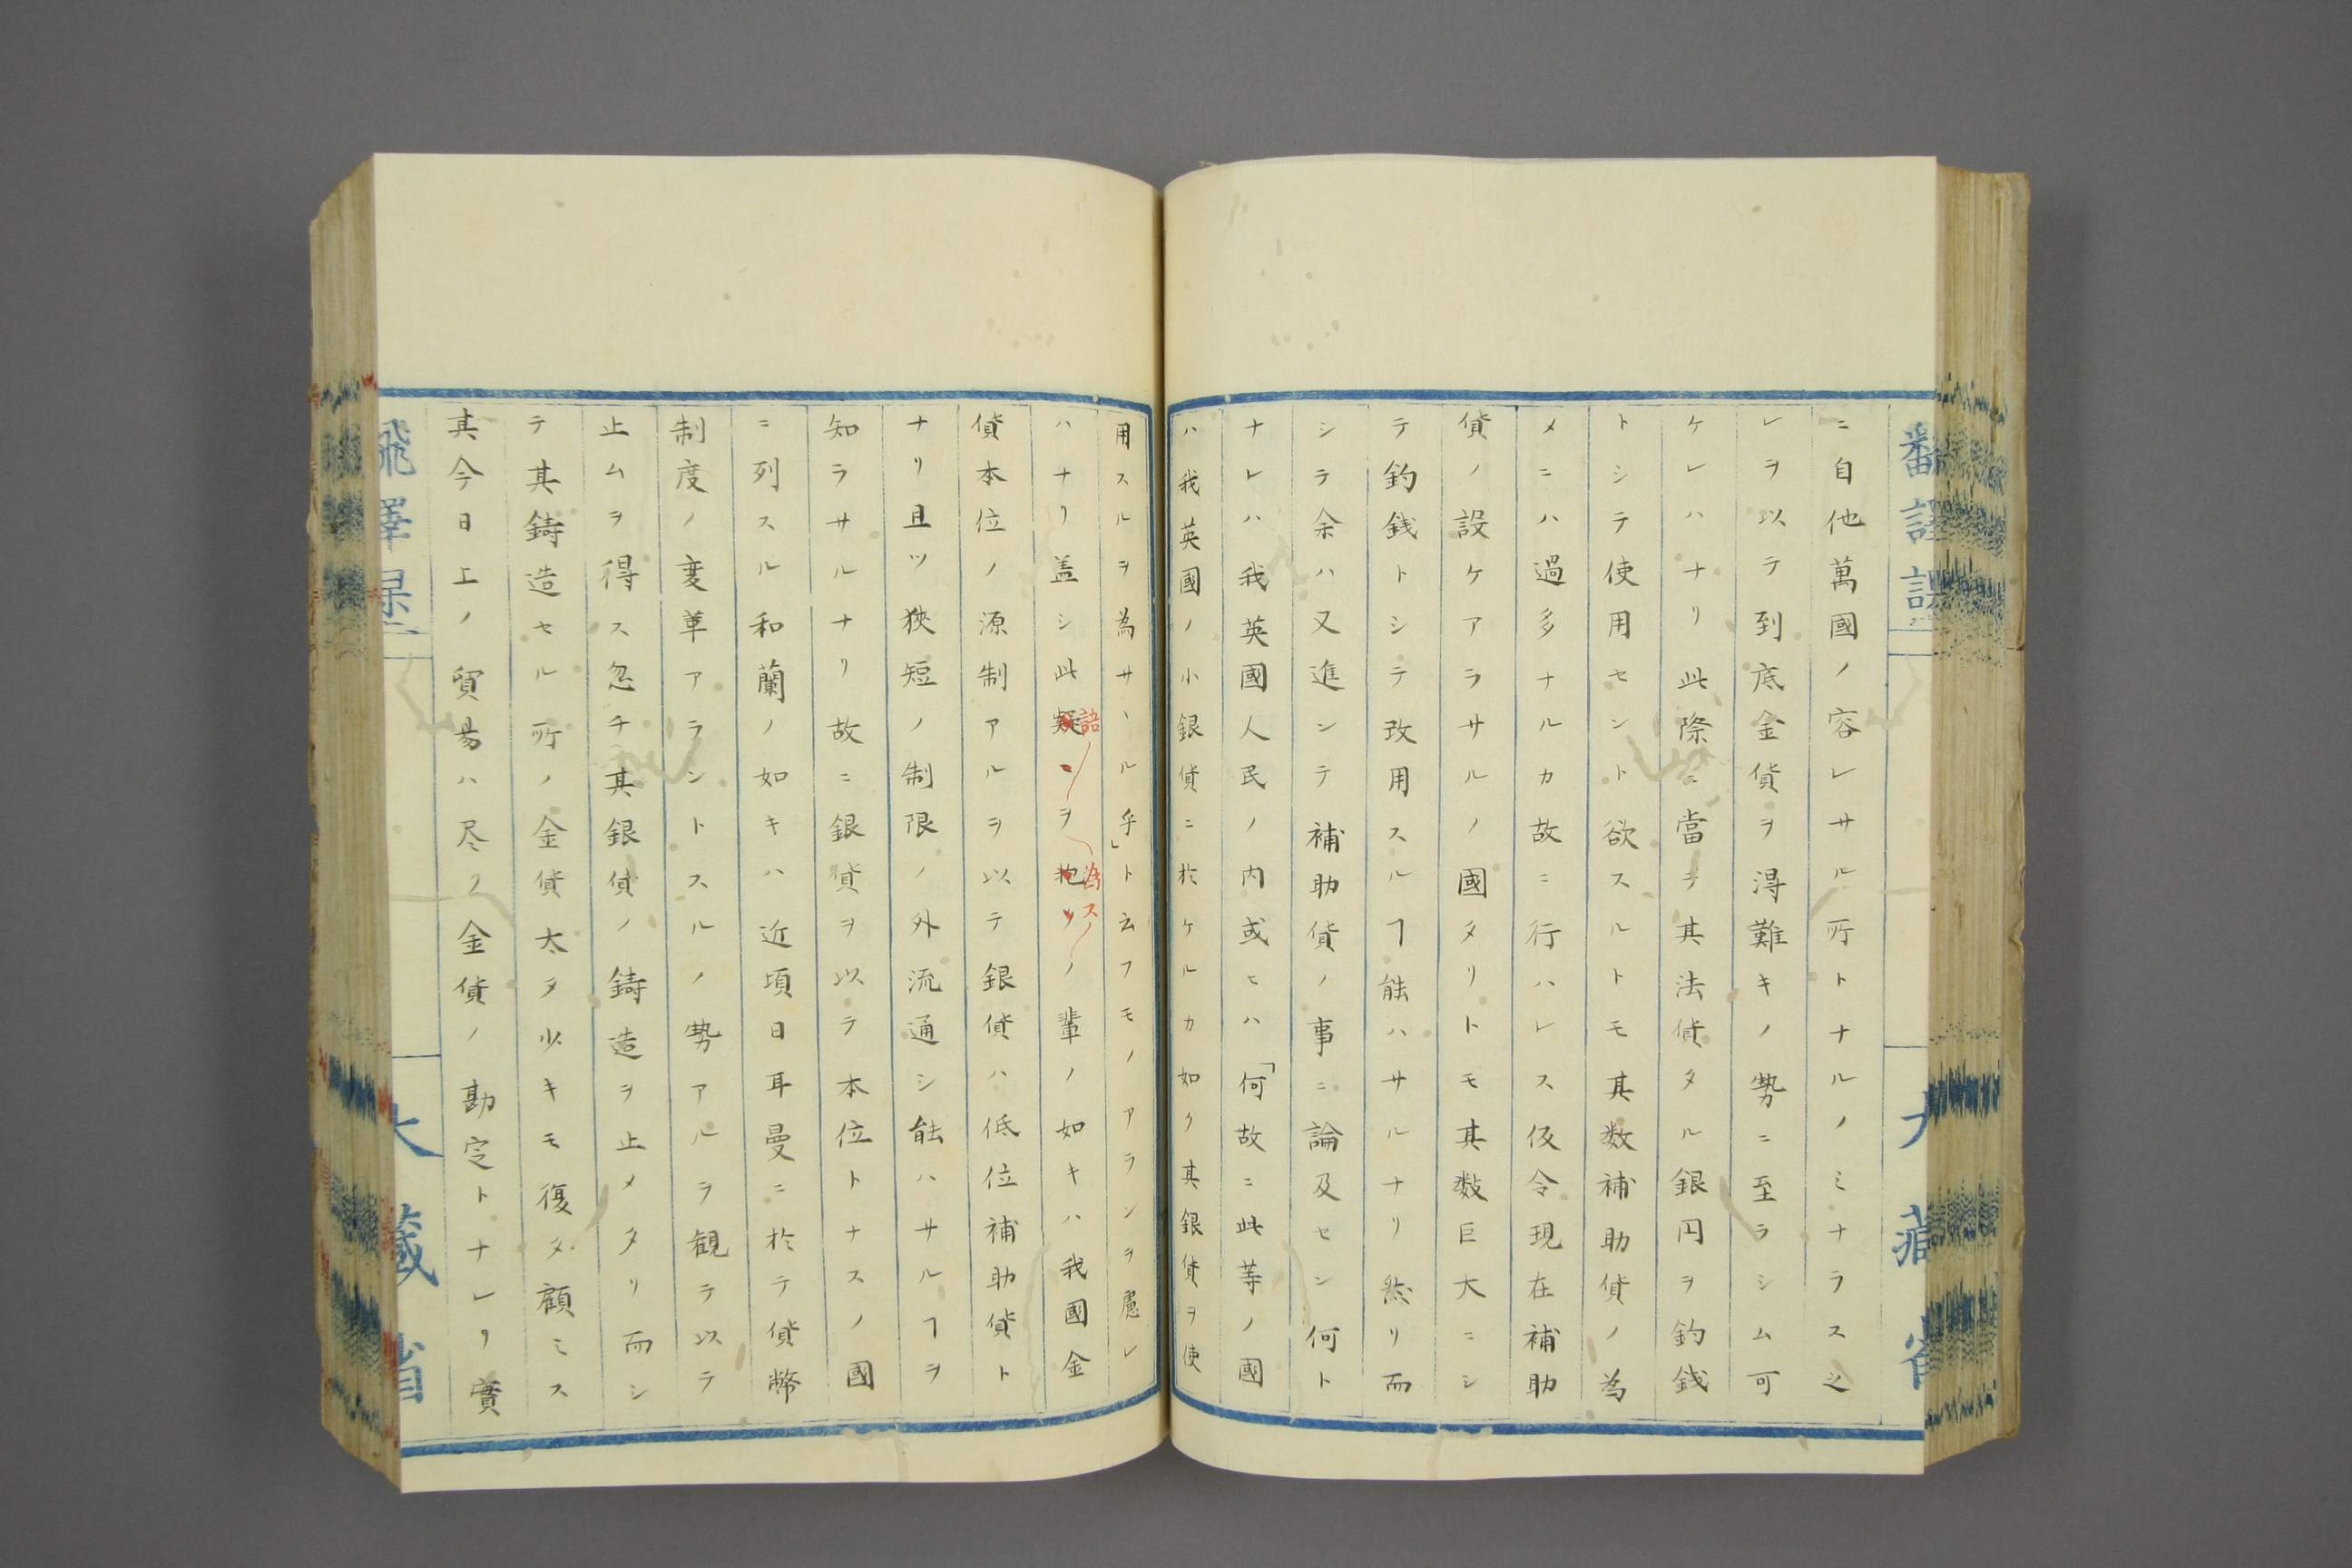 番譯課
大藏省
ニ自他萬國ノ容レサル所トナルノミナラス之
レヲ以テ到底金貨ヲ得難キノ勢ニ至ラシム可
ケレハナリ此際ニ當テ其法貨タル銀円ヲ釣銭
トシテ使用セント欲スルトモ其数補助貨ノ為
メニハ過多ナルカ故ニ行ハレス仮令現在補助
貨ノ設ケアラサルノ國タリトモ其数巨大ニシ
テ釣銭トシテ改用スルヿ能ハサルナリ然リ而
シテ余ハ又進ンテ補助貨ノ事ニ論及セン何ト
ナレハ我英國人民ノ内或ヒハ「何故ニ此等ノ國
ハ我英國ノ小銀貨ニ於ケルカ如ク其銀貨ヲ使
用スルヲ為サヽル乎」ト云フモノアランヲ慮レ
ハナリ盖シ此疑ヲ抱クノ輩ノ如キハ我國金
語ノ
為ス
貨本位ノ源制アルヲ以テ銀貨ハ低位補助貨ト
ナリ且ツ狹短ノ制限ノ外流通シ能ハサルヿヲ
知ラサルナリ故ニ銀貨ヲ以テ本位トナスノ國
ニ列スル和蘭ノ如キハ近頃日耳曼ニ於テ貨幣
制度ノ変革アラントスルノ勢アルヲ観テ以テ
止ムヲ得ス忽チ其銀貨ノ鋳造ヲ止メタリ而シ
テ其鋳造セル所ノ金貨太タ少キモ復タ顧ミス
其今日上ノ貿易ハ尽ク金貨ノ勘定トナレリ實
大藏省